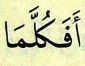 أَفَكُلَّمَا